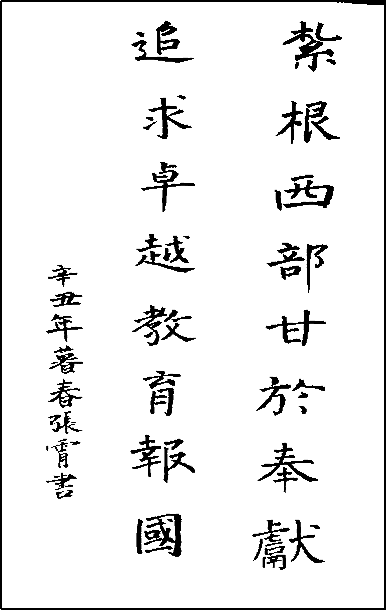 紮根西部甘於奉獻
追求卓越教育報國
辛丑年暮春張霄書